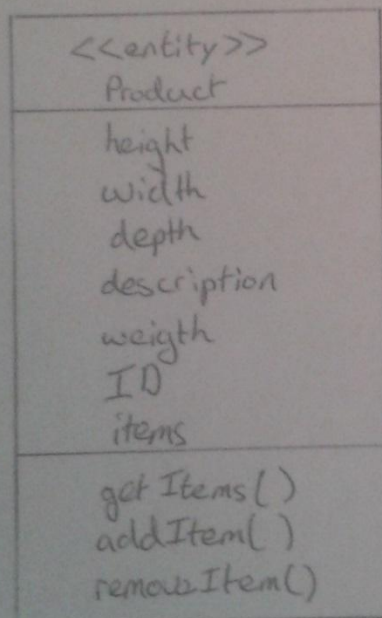 <<entity>>
Product
height
width
depth
description
weigth
ID
items
getItems()
addItem()
removeItem()